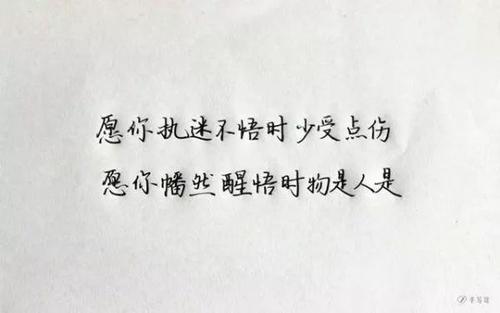 愿你执迷不悟时少受点伤
愿你幡然醒悟时物是人是
手写馆